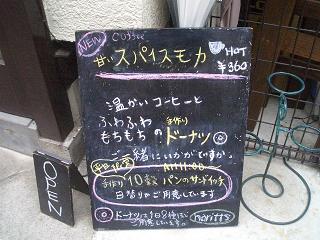 NEW
coffee
甘い スパイスモカ
HOT
¥360
温かいコーヒーと
ふわふわ
もちもちの 手作り ドーナッツ
ご一緒にいかがですか。
AM11:00
手作り 10食 パンのサンドイッチ
日替りでご用意しています
ドーナツは1日8種ほど
ご用意しています。
noritts
OPEN